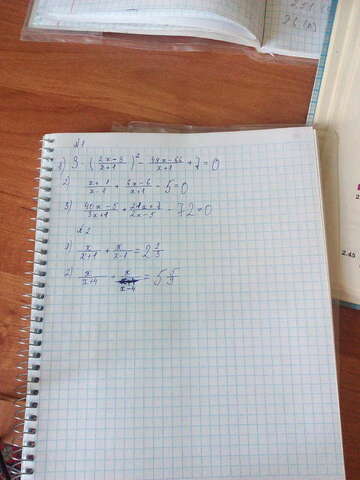 №1
1) 3 · (2x-3/x+1)² - 44x-66/x+1 + 7 = 0
2) x+1/x-1 + 6x-6/x+1 - 5 = 0
3) 40x-5/3x+1 + 21x+7/2x-5 - 72 = 0
№2
1) x/x+1 + x/x-1 = 2
2) x/x+4 + x/x-4 = 5 5/9
2.45